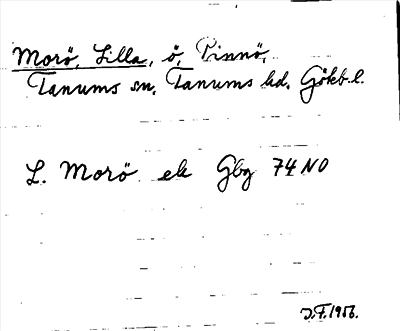 Morö, Lilla, ö, Pinnö,
Tanums sn, Tanums hd. Gökb. l.
L. Morö ek Gbg 74 NO
J.F. 1956.